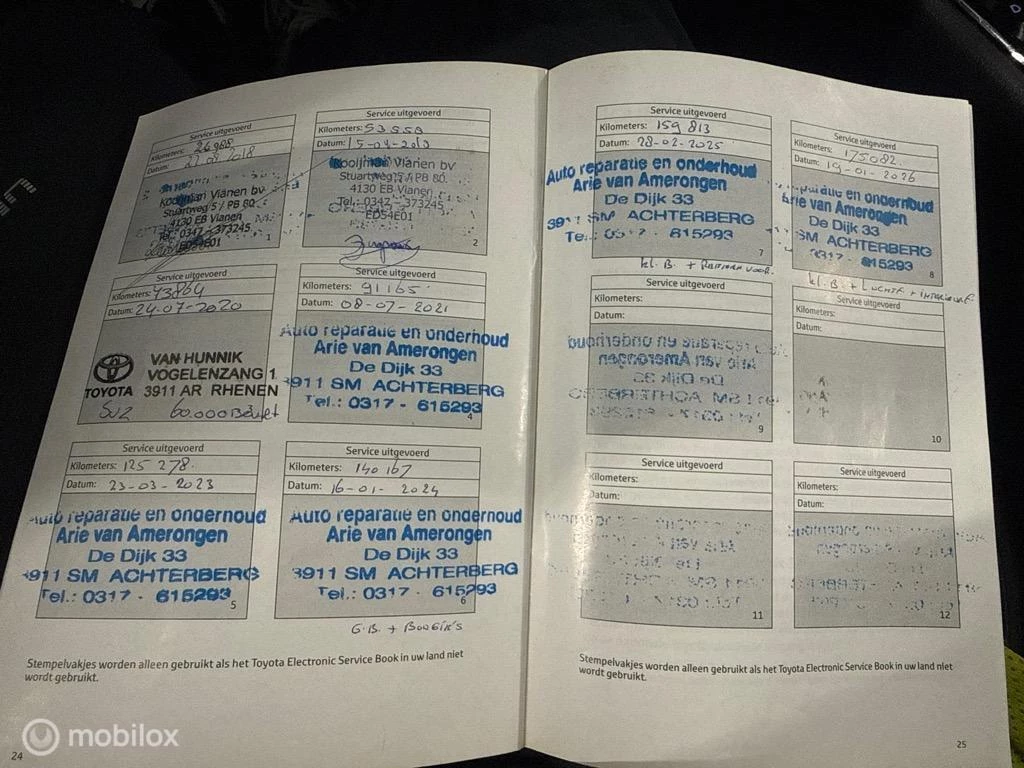 Service uitgevoerd
Kilometers: 26988
Datum: 27 08 2018
Kooijman Vianen bv
Stuartweg 5 / PB 80
4130 EB Vianen
Tel.: 0347 - 373245
ED54E01
1
Service uitgevoerd
Kilometers: 53550
Datum: 15-04-2019
Kooijman Vianen bv
Stuartweg 5 / PB 80
4130 EB Vianen
Tel.: 0347 - 373245
ED54E01
2
Service uitgevoerd
Kilometers: 73864
Datum: 24-07-2020
TOYOTA
VAN HUNNIK
VOGELENZANG 1
3911 AR RHENEN
60.000 Beurt
Service uitgevoerd
Kilometers: 91165
Datum: 08-07-2021
Auto reparatie en onderhoud
Arie van Amerongen
De Dijk 33
3911 SM ACHTERBERG
Tel.: 0317 - 615293
4
Service uitgevoerd
Kilometers: 125 278
Datum: 23-03-2023
Auto reparatie en onderhoud
Arie van Amerongen
De Dijk 33
3911 SM ACHTERBERG
Tel.: 0317 - 615293
5
Service uitgevoerd
Kilometers: 140 167
Datum: 16-01-2024
Auto reparatie en onderhoud
Arie van Amerongen
De Dijk 33
3911 SM ACHTERBERG
Tel.: 0317 - 615293
6
G.B. + BOUGIE'S
Stempelvakjes worden alleen gebruikt als het Toyota Electronic Service Book in uw land niet
wordt gebruikt.
24
Service uitgevoerd
Kilometers: 159 813
Datum: 28-02-2025
Auto reparatie en onderhoud
Arie van Amerongen
De Dijk 33
3911 SM ACHTERBERG
Te.: 0317 - 615293
7
kl. B. + REMMEN VOOR.
Service uitgevoerd
Kilometers: 175082
Datum: 19-01-2026
en onderhoud
Arie van Amerongen
De Dijk 33
SM ACHTERBERG
0317 - 615293
8
kl. B + LUCHTF + INTERIEURF
Service uitgevoerd
Kilometers:
Datum:
9
Service uitgevoerd
Kilometers:
Datum:
10
Service uitgevoerd
Kilometers:
Datum:
11
Service uitgevoerd
Kilometers:
Datum:
12
Stempelvakjes worden alleen gebruikt als het Toyota Electronic Service Book in uw land niet
wordt gebruikt.
25
mobilox